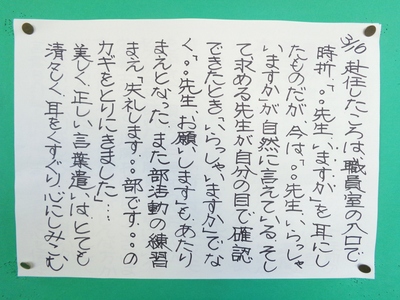 3/6 赴任したころは、職員室の入口で
時折、「○○先生、いますか」を耳にし
たものだが、今は「○○先生、いらっしゃ
いますか」が自然に言えている。そし
て求める先生が自分の目で確認
できたとき「いらっしゃいますか」でな
く、「○○先生、お願いします」もあたり
まえとなった。また部活動の練習
まえ「失礼します。○○部です。○○の
カギをとりにきました」…
美しく正しい言葉遣いはとても
清々しく、耳をくすぐり、心にしみこむ